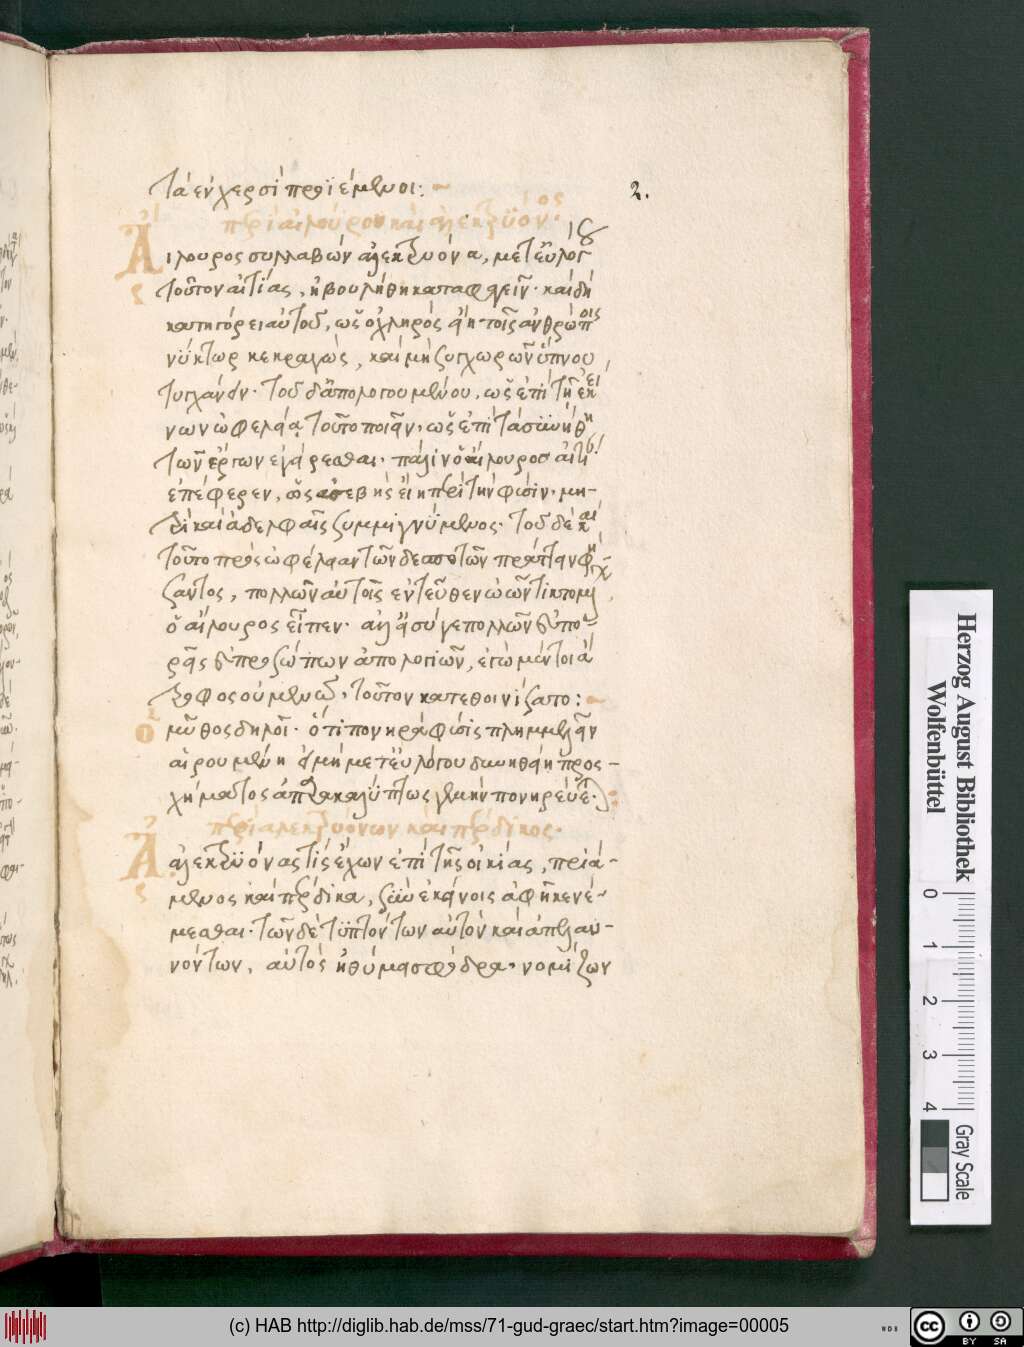 τὰ ἐν χερσὶ προϊέμενοι:~
2.
περὶ αἰλούρου καὶ ἀλεκτρυόνος.
Αἴλουρος συλλαβὼν ἀλεκτρυόνα, μετ' εὐλόγου
τοῦτον αἰτίας, ἠβουλήθη καταφαγεῖν· καὶ δὴ
κατηγόρει αὐτοῦ, ὡς ὀχληρὸς εἴη τοῖς ἀνθρώποις
νύκτωρ κεκραγὼς, καὶ μὴ συγχωρῶν ὕπνου
τυγχάνειν· τοῦ δ' ἀπολογουμένου, ὡς ἐπὶ τῇ ἐκεί
νων ὠφελείᾳ τοῦτο ποιεῖν, ὡς ἐπὶ τὰ συνήθη
τῶν ἔργων ἐγείρεσθαι· πάλιν ὁ αἴλουρος αἰτίαν
ἐπέφερεν, ὡς ἀσεβὴς εἴη περὶ τὴν φύσιν· μη-
τρὶ καὶ ἀδελφαῖς συμμιγνύμενος· τοῦ δὲ καὶ
τοῦτο πρὸς ὠφέλειαν τῶν δεσποτῶν πράττειν φή
σαντος, πολλῶν αὐτοῖς ἐντεῦθεν ὠῶν τικτομένων
ὁ αἴλουρος εἶπεν· ἀλλ' εἰ σύ γε πολλῶν εὐπο
ρεῖς εὐπροσώπων ἀπολογιῶν, ἐγὼ μέντοι ἄ
τροφος οὐ μενῶ, τοῦτον κατεθοινίσατο:~
Ὁ μῦθος δηλοῖ· ὅτι πονηρὰ φύσις πλημμελεῖν
αἱρουμένη εἰ μὴ μετ' εὐλόγου δυνηθείη προς-
χήματος ἀπαρακαλύπτως γε μὴν πονηρεύεται:
περὶ ἀλεκτρυόνων καὶ πέρδικος.
Ἀλεκτρυόνας τίς ἔχων ἐπὶ τῆς οἰκίας, πριά-
μενος καὶ πέρδικα, σὺν ἐκείνοις ἀφῆκε νέ-
μεσθαι· τῶν δὲ τυπτόντων αὐτὸν καὶ ἀπελαυ-
νόντων, αὐτὸς ἠθύμει σφόδρα, νομίζων
Herzog August Bibliothek
Wolfenbüttel
0 1 2 3 4
Gray Scale
(c) HAB http://diglib.hab.de/mss/71-gud-graec/start.htm?image=00005
cc BY SA